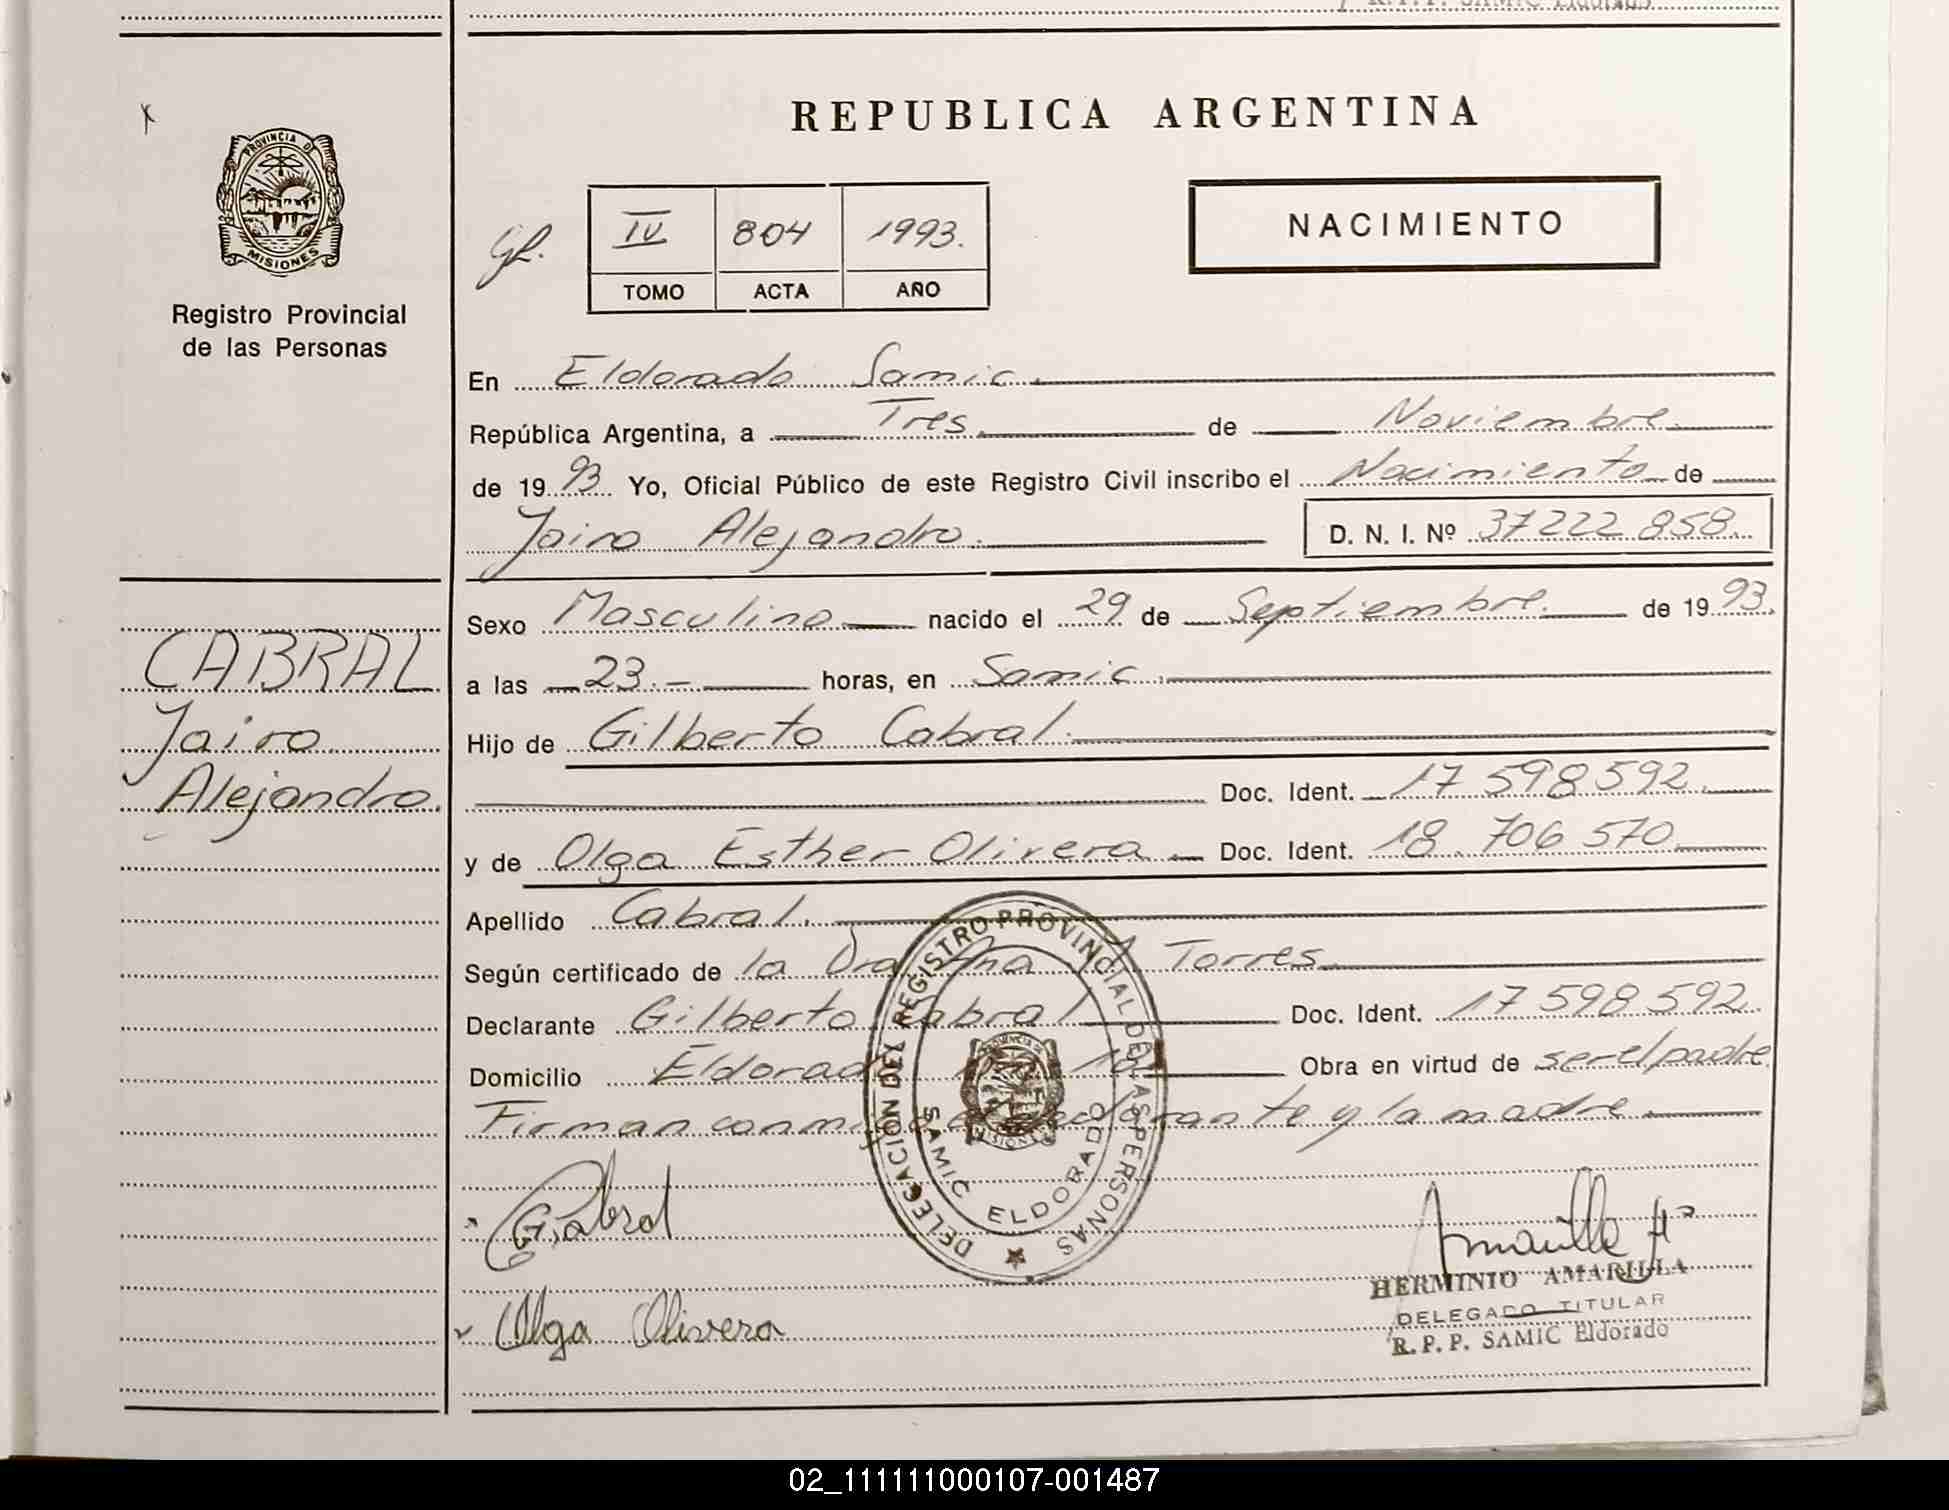 R.P.P. SAMIC Eldorado
PROVINCIA DE
MISIONES
Registro Provincial
de las Personas
CABRAL
Jairo
Alejandro.
REPUBLICA ARGENTINA
IV 804 1993.
TOMO ACTA AÑO
NACIMIENTO
En Eldorado Samic.
República Argentina, a Tres de Noviembre
de 1993 Yo, Oficial Público de este Registro Civil inscribo el Nacimiento de
Jairo Alejandro. D. N. I. Nº 37222 858.
Sexo Masculino nacido el 29 de Septiembre. de 1993.
a las 23.- horas, en Samic.
Hijo de Gilberto Cabral.
Doc. Ident. 17 598 592.
y de Olga Esther Olivera Doc. Ident. 18.706 570
Apellido Cabral.
Según certificado de la Dra Ana Torres
Declarante Gilberto Cabral Doc. Ident. 17 598 592.
Domicilio Eldorado 18 Obra en virtud de ser el padre
Firman conmigo el declarante y la madre.
DELEGACION DEL REGISTRO PROVINCIAL DE LAS PERSONAS
SAMIC ELDORADO
G. Cabral
Olga Olivera
Amarilla Hº
HERMINIO AMARILLA
DELEGADO TITULAR
R. P. P. SAMIC Eldorado
02_111111000107-001487